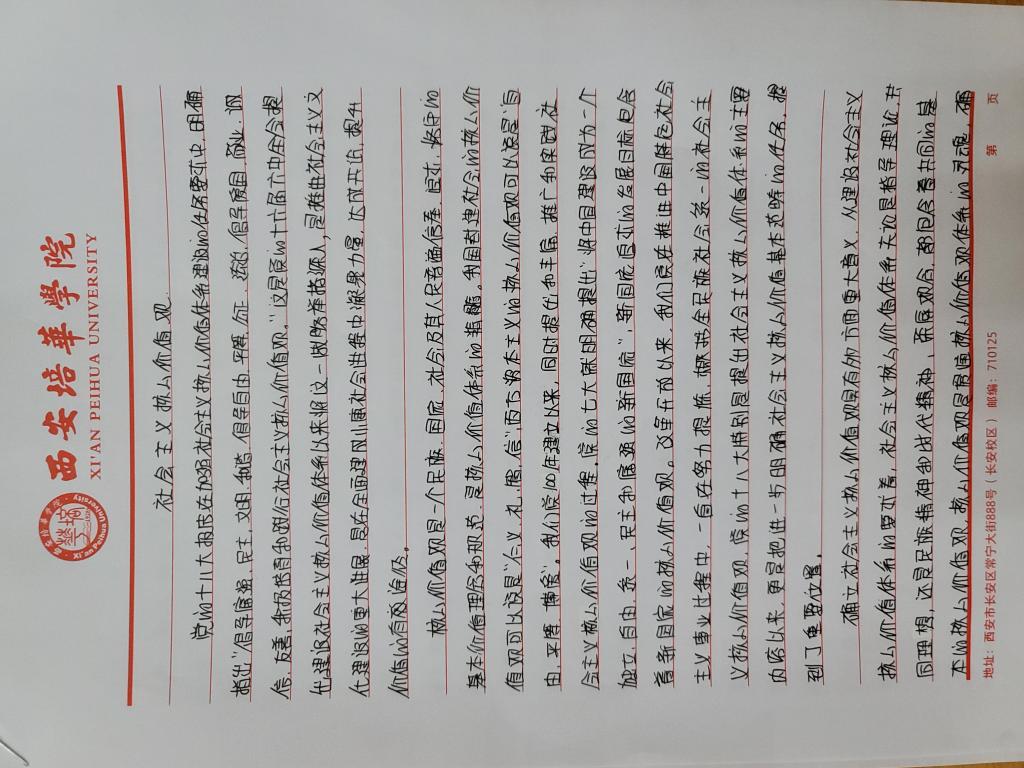 西安培華學院
XI'AN PEIHUA UNIVERSITY
社会主义核心价值观
党的十八大报告在加强社会主义核心价值体系建设的任务要求中,明确
提出"倡导富强、民主、文明、和谐,倡导自由、平等、公正、法治,倡导爱国、敬业、诚
信、友善,积极培育和践行社会主义核心价值观。"这是党的十七届六中全会提
出建设社会主义核心价值体系以来将这一战略举措深入,是推进社会主义文
化建设的重大进展,是在全面建成小康社会进程中凝聚力量、达成共识、提升
价值的有效途径。
核心价值观是一个民族、国家、社会及其人民普遍信奉、追求、坚守的
基本价值理念和规范,是核心价值体系的精髓。我国封建社会的核心价
值观可以说是"仁、义、礼、智、信",西方资本主义的核心价值观可以说是"自
由、平等、博爱"。我们党100年建立以来,同时提出和丰富、推广和实践社
会主义核心价值观的过程,党的七大就明确提出"将中国建设成为一个
独立、自由、统一、民主和富强的新国家",新国家追求的发展目标包含
着新国家的核心价值观。改革开放以来,我们党在推进中国特色社会
主义事业过程中,一直在努力提炼、概括全民族社会统一的社会主
义核心价值观,党的十八大特别是提出社会主义核心价值体系的主要
内容以来,更是把进一步明确社会主义核心价值基本范畴的任务,提
到了重要位置。
确立社会主义核心价值观具有多方面重大意义,从建设社会主义
核心价值体系的要求看,社会主义核心价值体系无论是指导理论,共
同理想,还是民族精神和时代精神、荣辱观念,都包含着共同的基
本的核心价值观,核心价值观是贯通核心价值观体系的灵魂,确
地址:西安市长安区常宁大街888号(长安校区) 邮编:710125 第 页